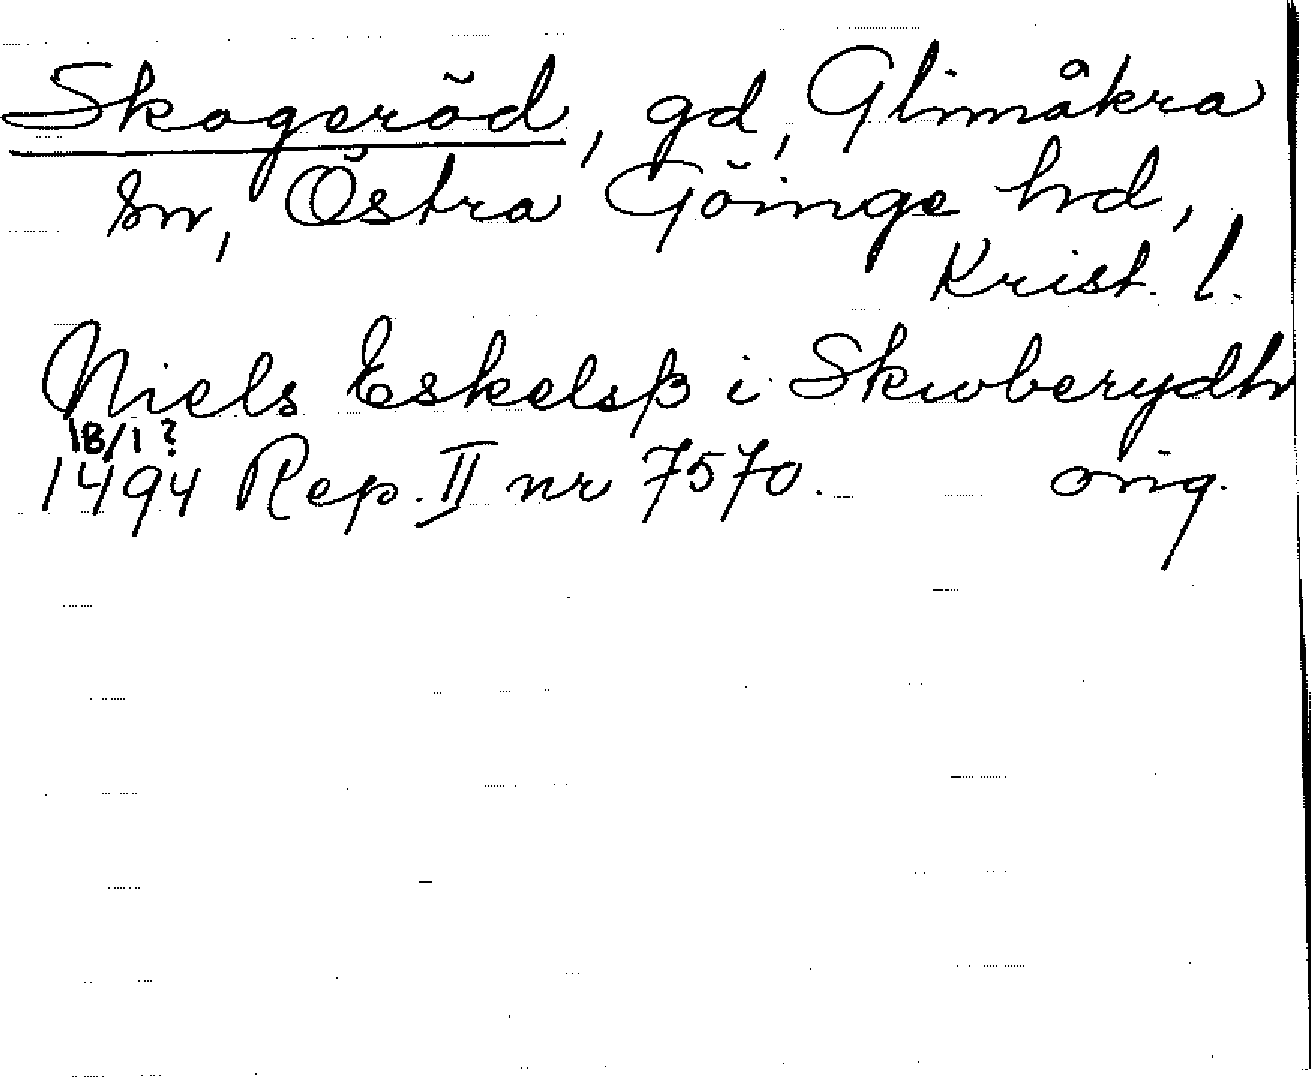 Skogeröd, gd, Glimåkra
sn, Östra Göinge hd,
Krist. l.
Niels Eskelsß i Skwberydh
18/1?
1494 Rep. II nr 7570. orig.